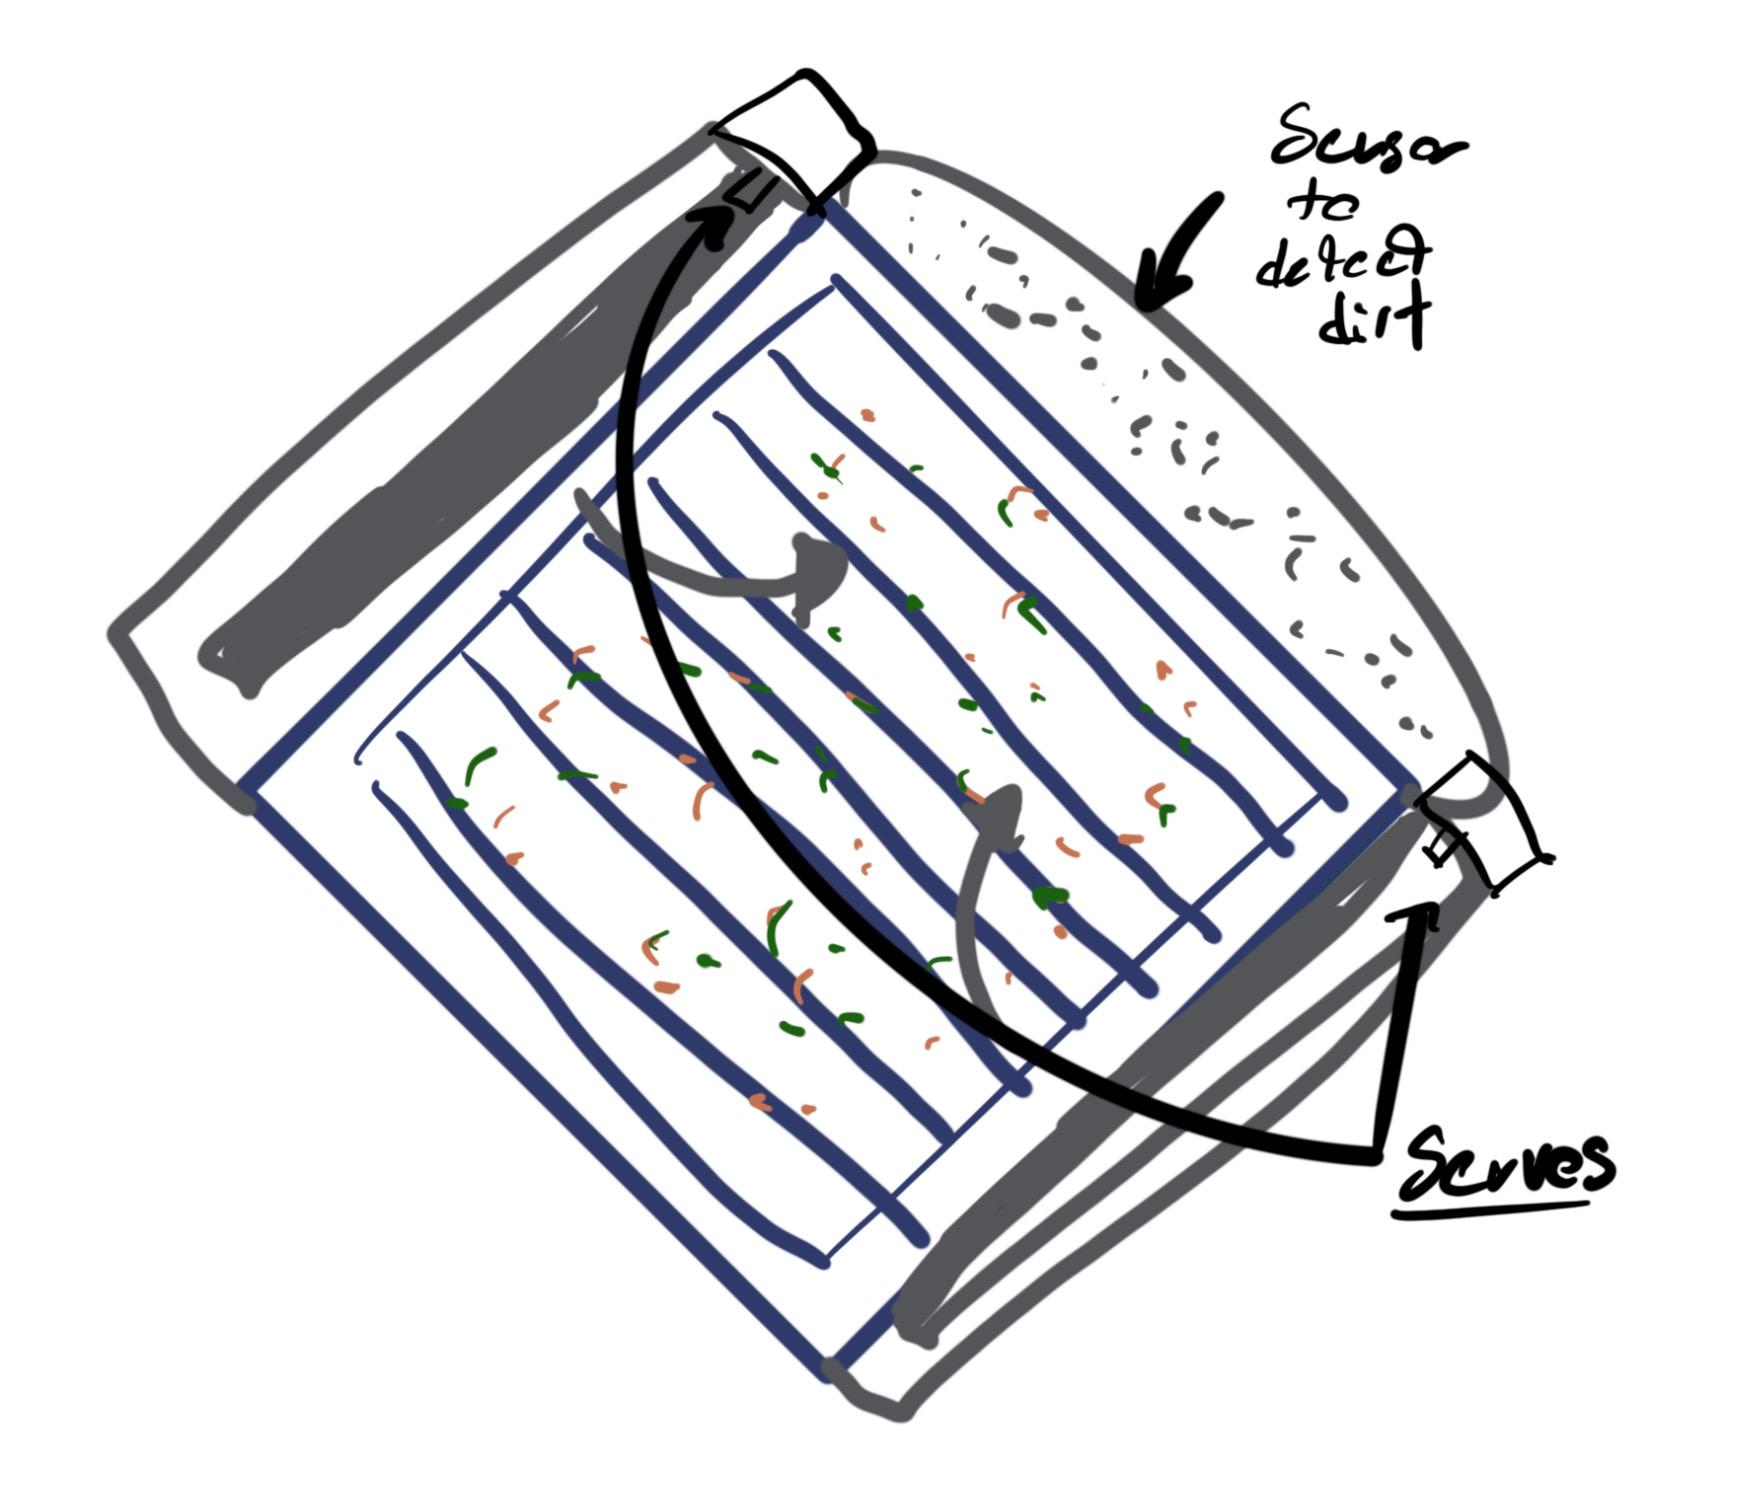 Sensor
to
detect
dirt
Serves